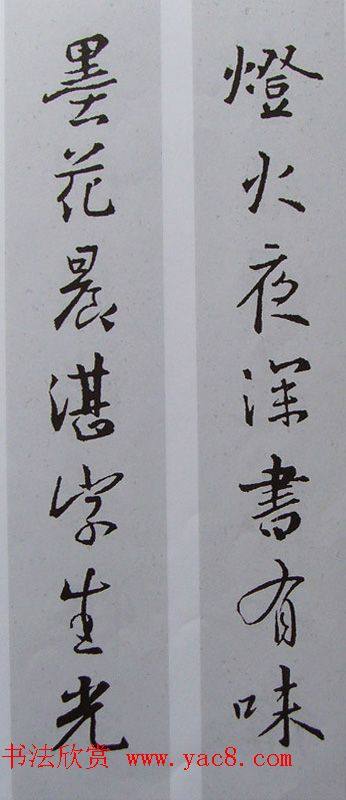 燈火夜深書有味
墨花晨湛字生光
书法欣赏 www.yac8.com